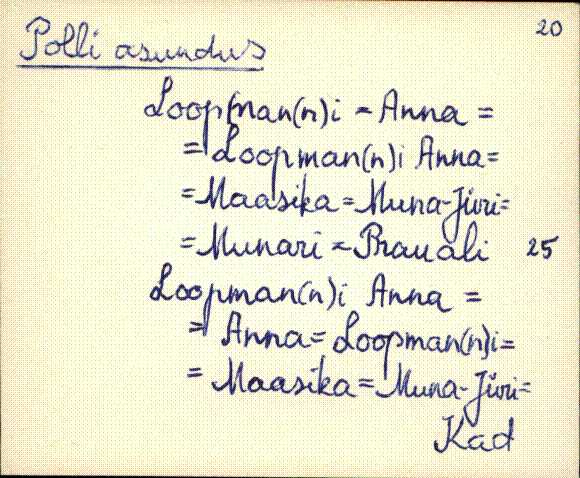 20
Polli asundus
Loopman(n)i = Anna =
= Loopman(n)i Anna=
=Maasika=Muna-Jüri=
=Munari =Prauali 25
Loopman(n)i Anna =
= Anna= Loopman(n)i=
= Maasika= Muna-Jüri=
Kad